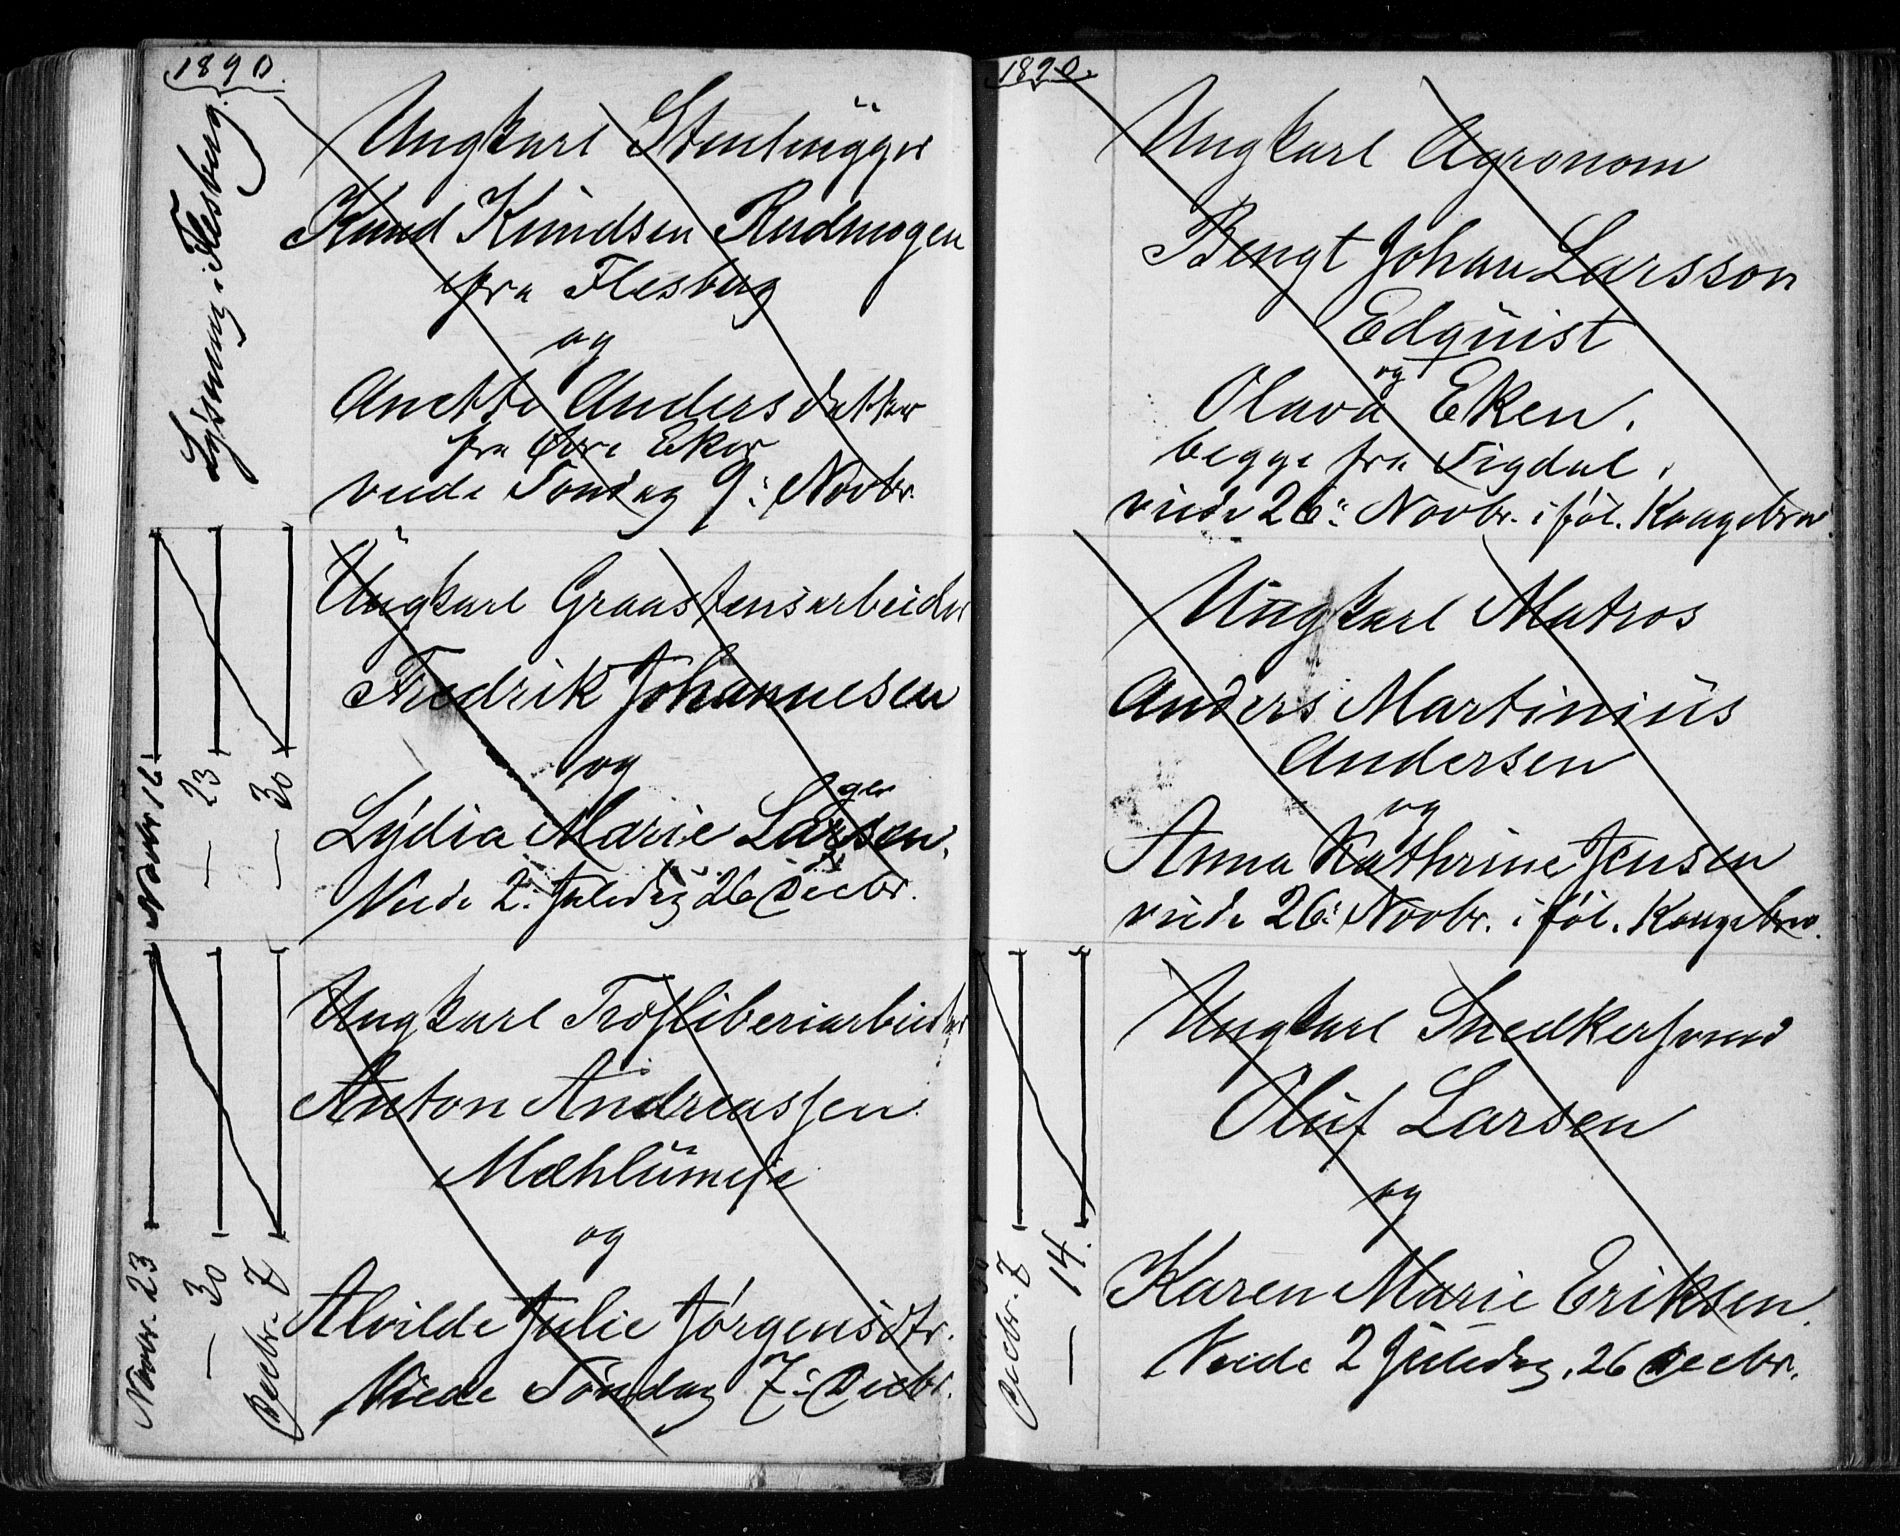 1890.
Lysning i Flesberg.
Ungkarl Stenhügger
Knud Knüdsen Rudmogen
fra Flesberg
og
Anette Andersdatter
fra Øvre Eker
viede Søndag 9: Novbr.
Novbr 16
— 23
— 30
Üngkarl Graastensarbeider
Fredrik Johannesen
og
ger
Lydia Marie Larsen.
Viede 2. Juledag 26 Decbr.
Novbr. 23
— 30
Decbr. 7
Ungkarl Træsliberiarbeider
Anton Andreassen
Mæhlüm
og
Alvilde Julie Jørgensdtr.
Viede Søndag 7: Decbr.
1890.
Ungkarl Agronom
Bengt Johan Larsson
Edquist
og
Olava Eken.
begge fra Sigdal.
viede 26: Novbr. i føl. Kongebrev.
Ungkarl Matros
Anders Martiniüs
Andersen
og
Anna Kathrine Jensen
viede 26: Novbr. i føl. Kongebrev.
Decbr. 7
— 14.
Ungkarl Snedkersvend
Olüf Larsen
og
Karen Marie Eriksen.
Viede 2 Juledag, 26 Decbr.